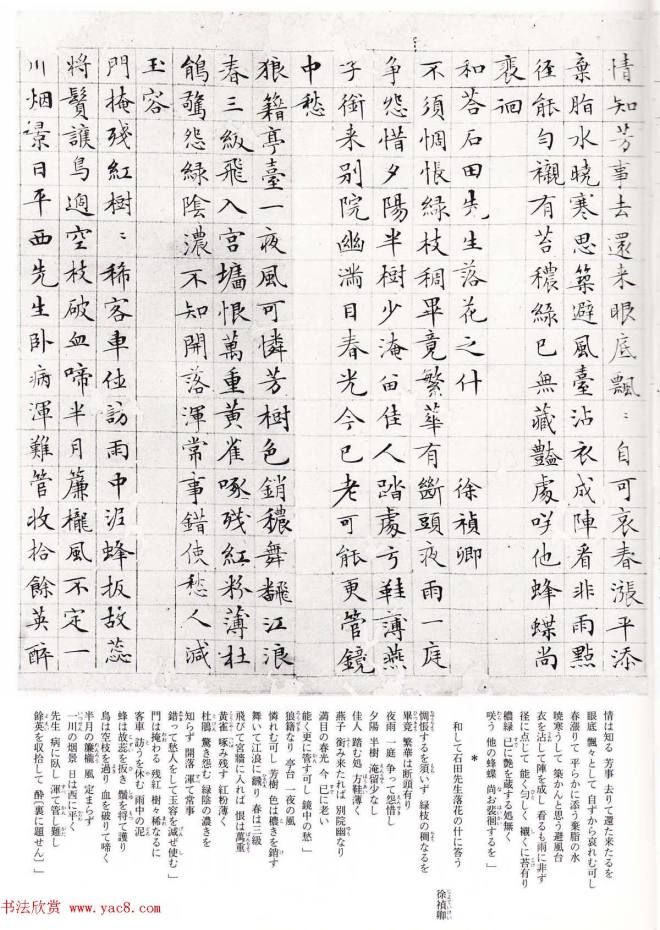 情知芳事去還来眼底飄〻自可哀春漲平添
棄脂水曉寒思築避風臺沾衣成陣看非雨點
徑能勻襯有苔穠綠已無藏豔處咲他蜂蝶尚
裵徊
和荅石田先生落花之什 徐禎卿
不須惆悵綠枝稠畢竟繁華有斷頭夜雨一庭
争怨惜夕陽半樹少淹留佳人踏處弓鞋薄燕
子銜来別院幽滿目春光今已老可能更管鏡
中愁
狼籍亭臺一夜風可憐芳樹色銷穠舞飜江浪
春三級飛入宮墻恨萬重黃雀啄殘紅粉薄杜
鵑驚怨綠陰濃不知開落渾常事錯使愁人減
玉容
門掩殘紅樹〻稀客車住訪雨中泥蜂扳故蕊
將鬚護鳥過空枝破血啼半月簾櫳風不定一
川烟景日平西先生卧病渾難管收拾餘英醉
情は知る 芳事 去りて還た来たるを
眼底 飄々として 自ずから哀れむ可し
春漲りて 平らかに添う棄脂の水
暁寒うして 築かんと思う避風台
衣を沾して陣を成し 看るも雨に非ず
径に点じて 能く勻しく 襯くに苔有り
穠緑 已に艶を蔵する処無く
咲う 他の蜂蝶 尚お裴徊するを」
*
和して石田先生落花の什に答う
徐禎卿
惆悵するを須いず 緑枝の稠なるを
畢竟 繁華は断頭有り
夜雨 一庭 争って怨惜し
夕陽 半樹 淹留少なし
佳人 踏む処 弓鞋薄く
燕子 銜み来たれば 別院幽なり
満目の春光 今 已に老い
能く更に管す可し 鏡中の愁」
狼籍なり 亭台 一夜の風
憐れむ可し 芳樹 色は穠きを銷す
舞いて江浪に飜り 春は三級
飛びて宮墻に入れば 恨は万重
黄雀 啄み残す 紅粉薄く
杜鵑 驚き怨む 緑陰の濃きを
知らず 開落 渾て常事
錯って愁人をして玉容を減ぜ使む」
門は掩わる 残紅 樹々 稀なるに
客車 訪うを休む 雨中の泥
蜂は故蕊を扳き 鬚を将て護り
鳥は空枝を過り 血を破りて啼く
半月の簾櫳 風 定まらず
一川の烟景 日は西に平く
先生 病に臥し 渾て管し難し
餘英を収拾して 酔〔裏に題せん〕」
书法欣赏 www.yac8.com